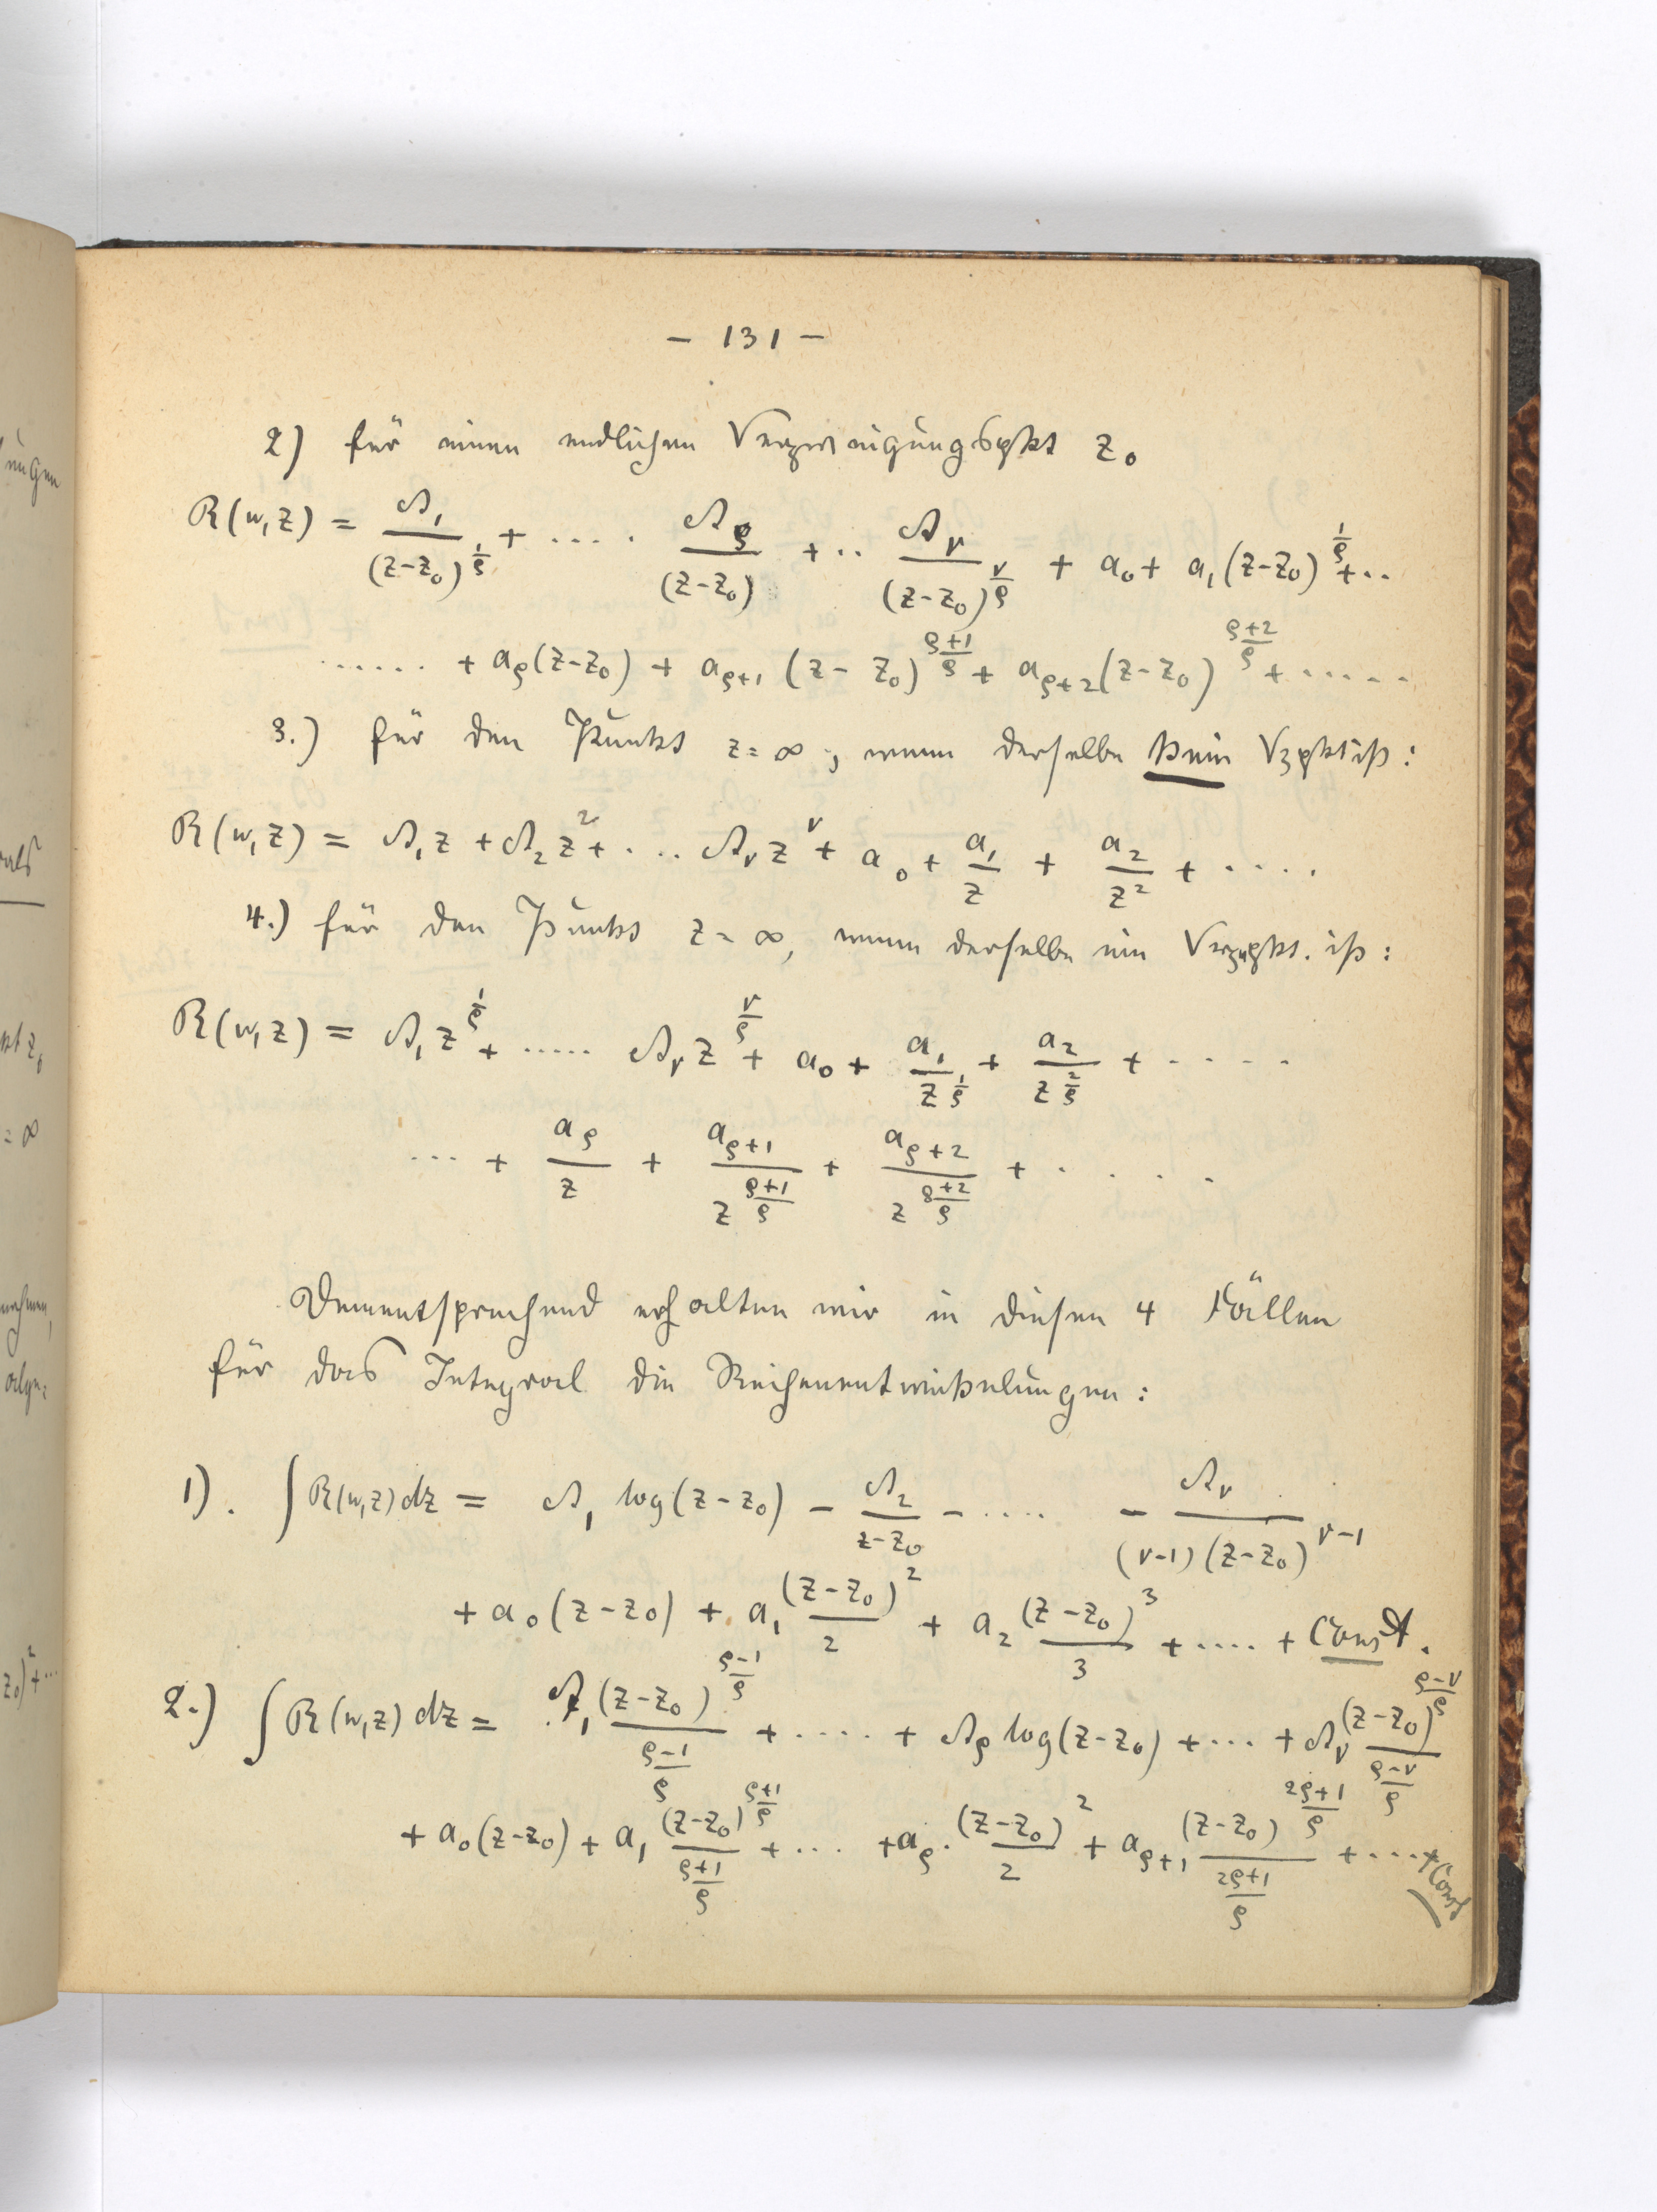 - 131 -
2) für einen endlichen Verzweigungspkt z₀
R(w,z) = A₁/(z-z₀)^(1/ρ) + ····· A_ρ/(z-z₀) + ·· A_ν/(z-z₀)^(ν/ρ) + a₀ + a₁(z-z₀)^(1/ρ) + ··
······ + a_ρ(z-z₀) + a_(ρ+1)(z-z₀)^((ρ+1)/ρ) + a_(ρ+2)(z-z₀)^((ρ+2)/ρ) + ·····
3.) für den Punkt z = ∞, wenn derselbe kein Vzpkt ist:
R(w,z) = A₁z + A₂z² + · ·· A_ν z^ν + a₀ + a₁/z + a₂/z² + ·····
4.) für den Punkt z = ∞, wenn derselbe ein Verzwpkt. ist:
R(w,z) = A₁z^(1/ρ) + ····· A_ν z^(ν/ρ) + a₀ + a₁/z^(1/ρ) + a₂/z^(2/ρ) + ·····
··· + a_ρ/z + a_(ρ+1)/z^((ρ+1)/ρ) + a_(ρ+2)/z^((ρ+2)/ρ) + · · · ·
Dementsprechend erhalten wir in diesen 4 Fällen
für das Integral die Reihenentwickelungen:
1). ∫R(w,z)dz = A₁ log(z-z₀) - A₂/(z-z₀) - ···· - A_ν/((ν-1)(z-z₀)^(ν-1))
+ a₀(z-z₀) + a₁ (z-z₀)²/2 + a₂ (z-z₀)³/3 + ···· + Const.
2.) ∫R(w,z)dz = A₁ (z-z₀)^((ρ-1)/ρ)/((ρ-1)/ρ) + ···· + A_ρ log(z-z₀) + ··· + A_ν (z-z₀)^((ρ-ν)/ρ)/((ρ-ν)/ρ)
+ a₀(z-z₀) + a₁ (z-z₀)^((ρ+1)/ρ)/((ρ+1)/ρ) + ··· + a_ρ · (z-z₀)²/2 + a_(ρ+1) (z-z₀)^((2ρ+1)/ρ)/((2ρ+1)/ρ) + ···· + Const